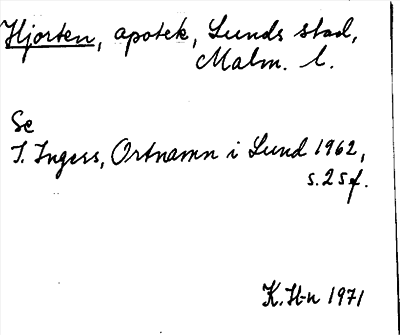 Hjorten, apotek, Lunds stad,
Malm. l.
Se
I. Ingers, Ortnamn i Lund 1962,
s. 25 f.
K. H-n 1971